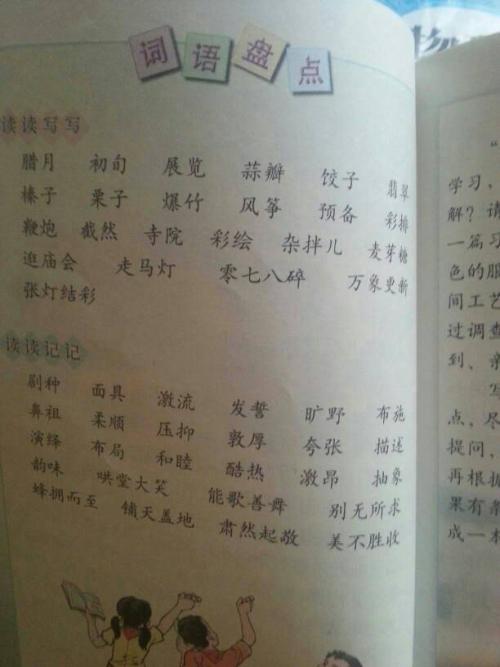 词语盘点
读读写写
腊月 初旬 展览 蒜瓣 饺子 翡翠
榛子 栗子 爆竹 风筝 预备 彩排
鞭炮 截然 寺院 彩绘 杂拌儿 麦芽糖
逛庙会 走马灯 零七八碎 万象更新
张灯结彩
读读记记
剧种 面具 激流 发誓 旷野 布施
鼻祖 柔顺 压抑 敦厚 夸张 描述
演绎 布局 和睦 酷热 激昂 抽象
韵味 哄堂大笑 能歌善舞 别无所求
蜂拥而至 铺天盖地 肃然起敬 美不胜收
“
学习,
解?请
一篇习
色的服
间工艺
过调查
到、亲
写
点,尽
提问,
再根据
果有条
成一本